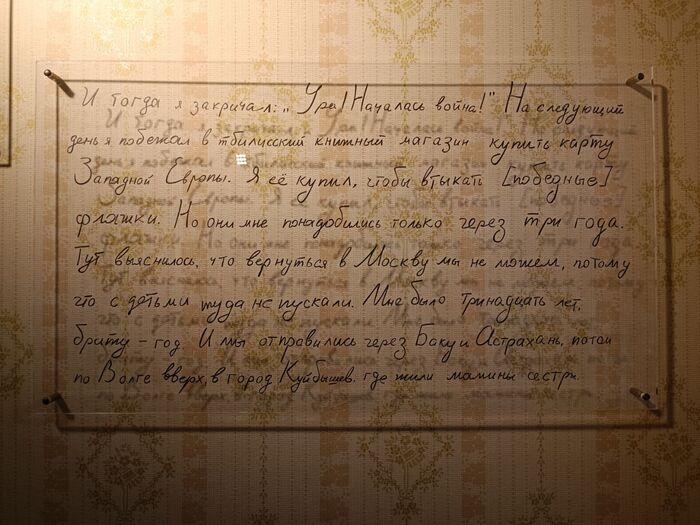 И тогда я закричал: „Ура! Началась война!" На следующий
день я побежал в тбилисский книжный магазин купить карту
Западной Европы. Я её купил, чтобы втыкать [победные]
флажки. Но они мне понадобились только через три года.
Тут выяснилось, что вернуться в Москву мы не можем, потому
что с детьми туда не пускали. Мне было тринадцать лет,
брату – год. И мы отправились через Баку и Астрахань, потом
по Волге вверх, в город Куйбышев, где жили мамины сестры.